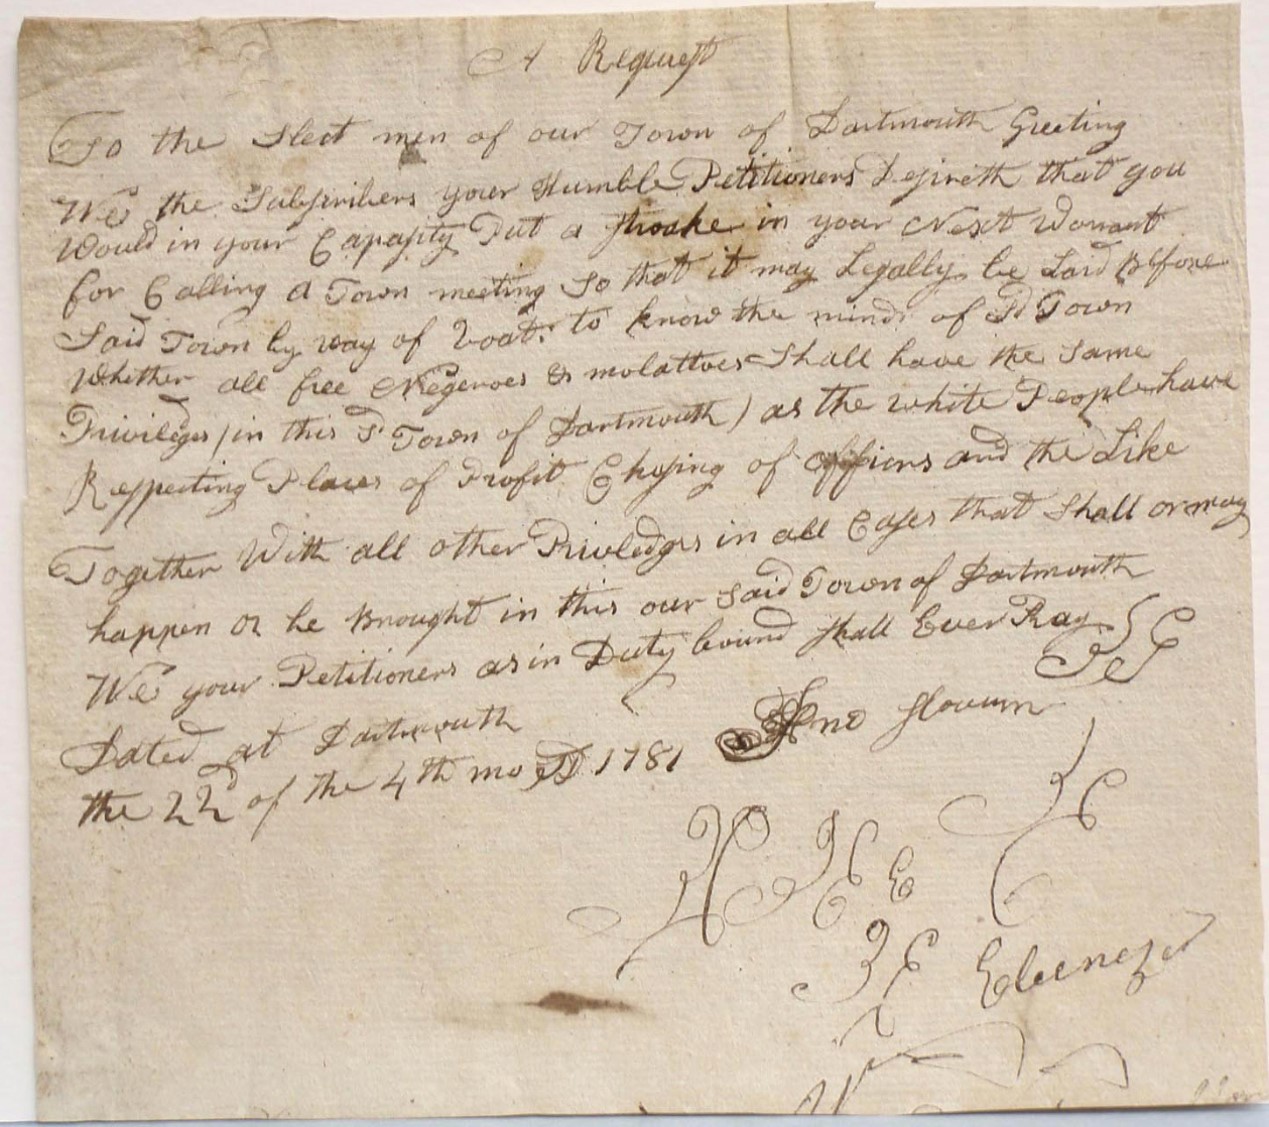 A Request
To the Slect men of our Town of Dartmouth Greeting
We the Subscribers your Humble Petitioners Desireth that you
Would in your Capasity Put a stroake in your Next Worrant
for Calling a Town meeting so that it may Legally be Laid Before
Said Town by way of voat to know the mind of Sd Town
Whether all free Negeroes & molattoes Shall have the same
Privileges (in this Sd Town of Dartmouth) as the white People have
Respecting Places of Profit Chosing of officers and the Like
Together With all other Priviledges in all Cases that Shall or may
happen or be Brought in this our Said Town of Dartmouth
We your Petitioners as in Duty bound shall Ever Pray
Dated at Dartmouth
the 22d of the 4th mo 1781
Jno slocum
Ebenezer